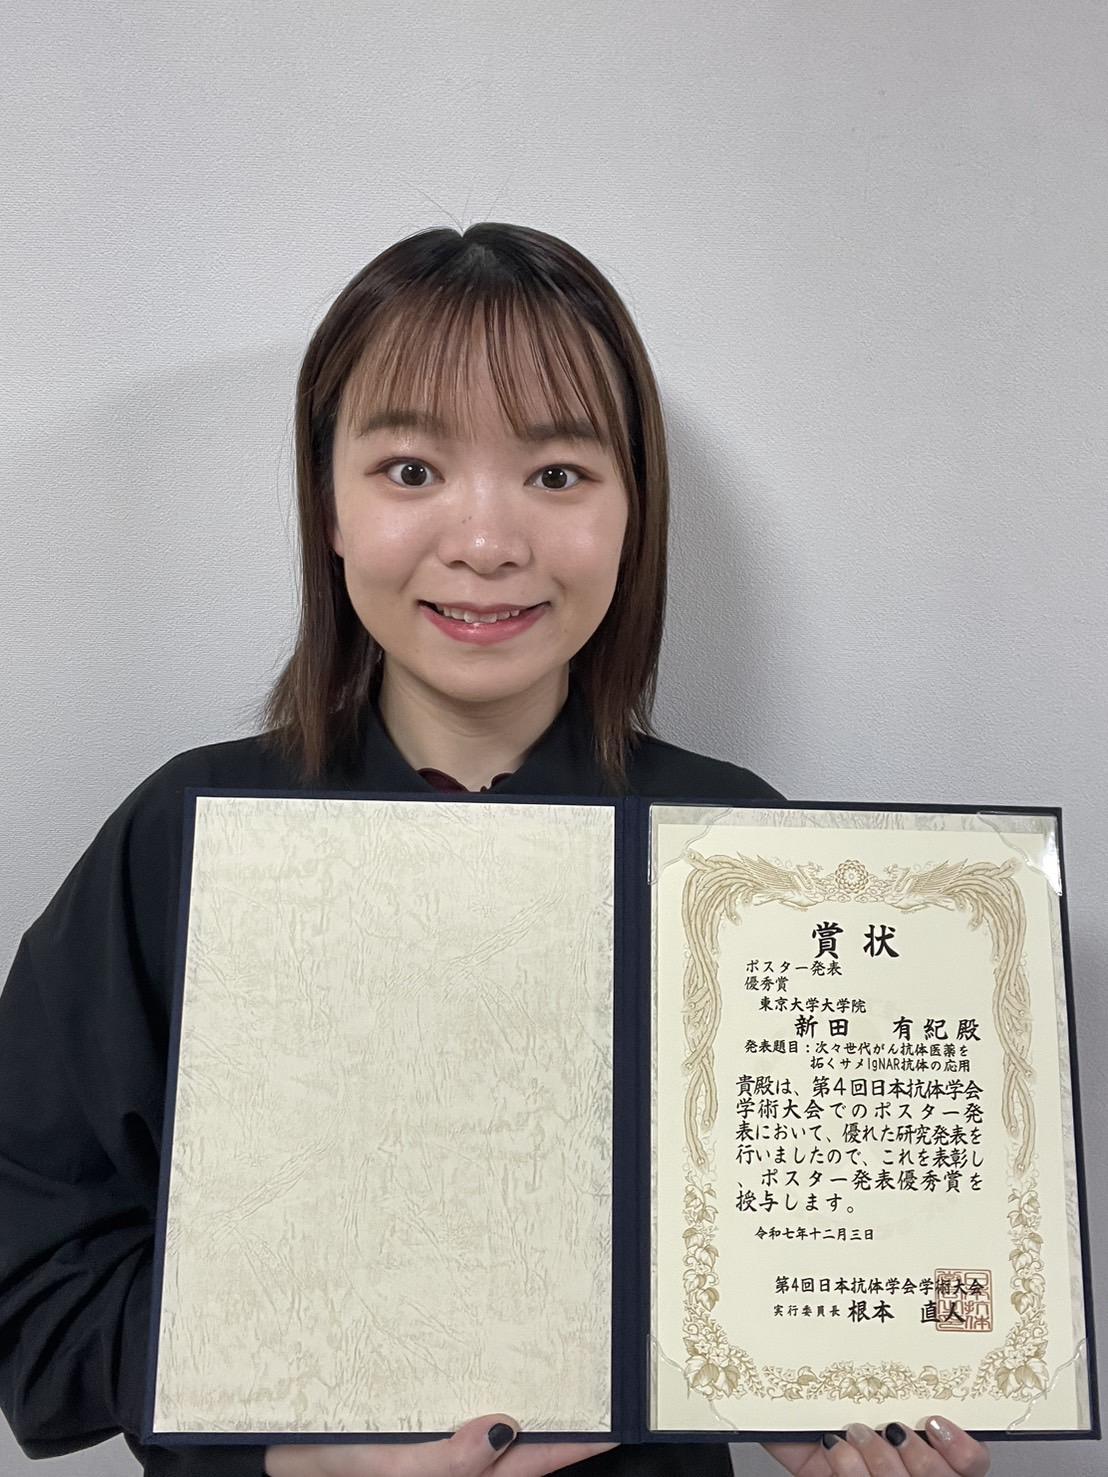 賞状
ポスター発表
優秀賞
東京大学大学院
新田 有紀殿
発表題目：次々世代がん抗体医薬を
拓くサメIgNAR抗体の応用
貴殿は、第４回日本抗体学会
学術大会でのポスター発
表において、優れた研究発表を
行いましたので、これを表彰し
、ポスター発表優秀賞を
授与します。
令和七年十二月三日
第4回日本抗体学会学術大会
実行委員長 根本 直人